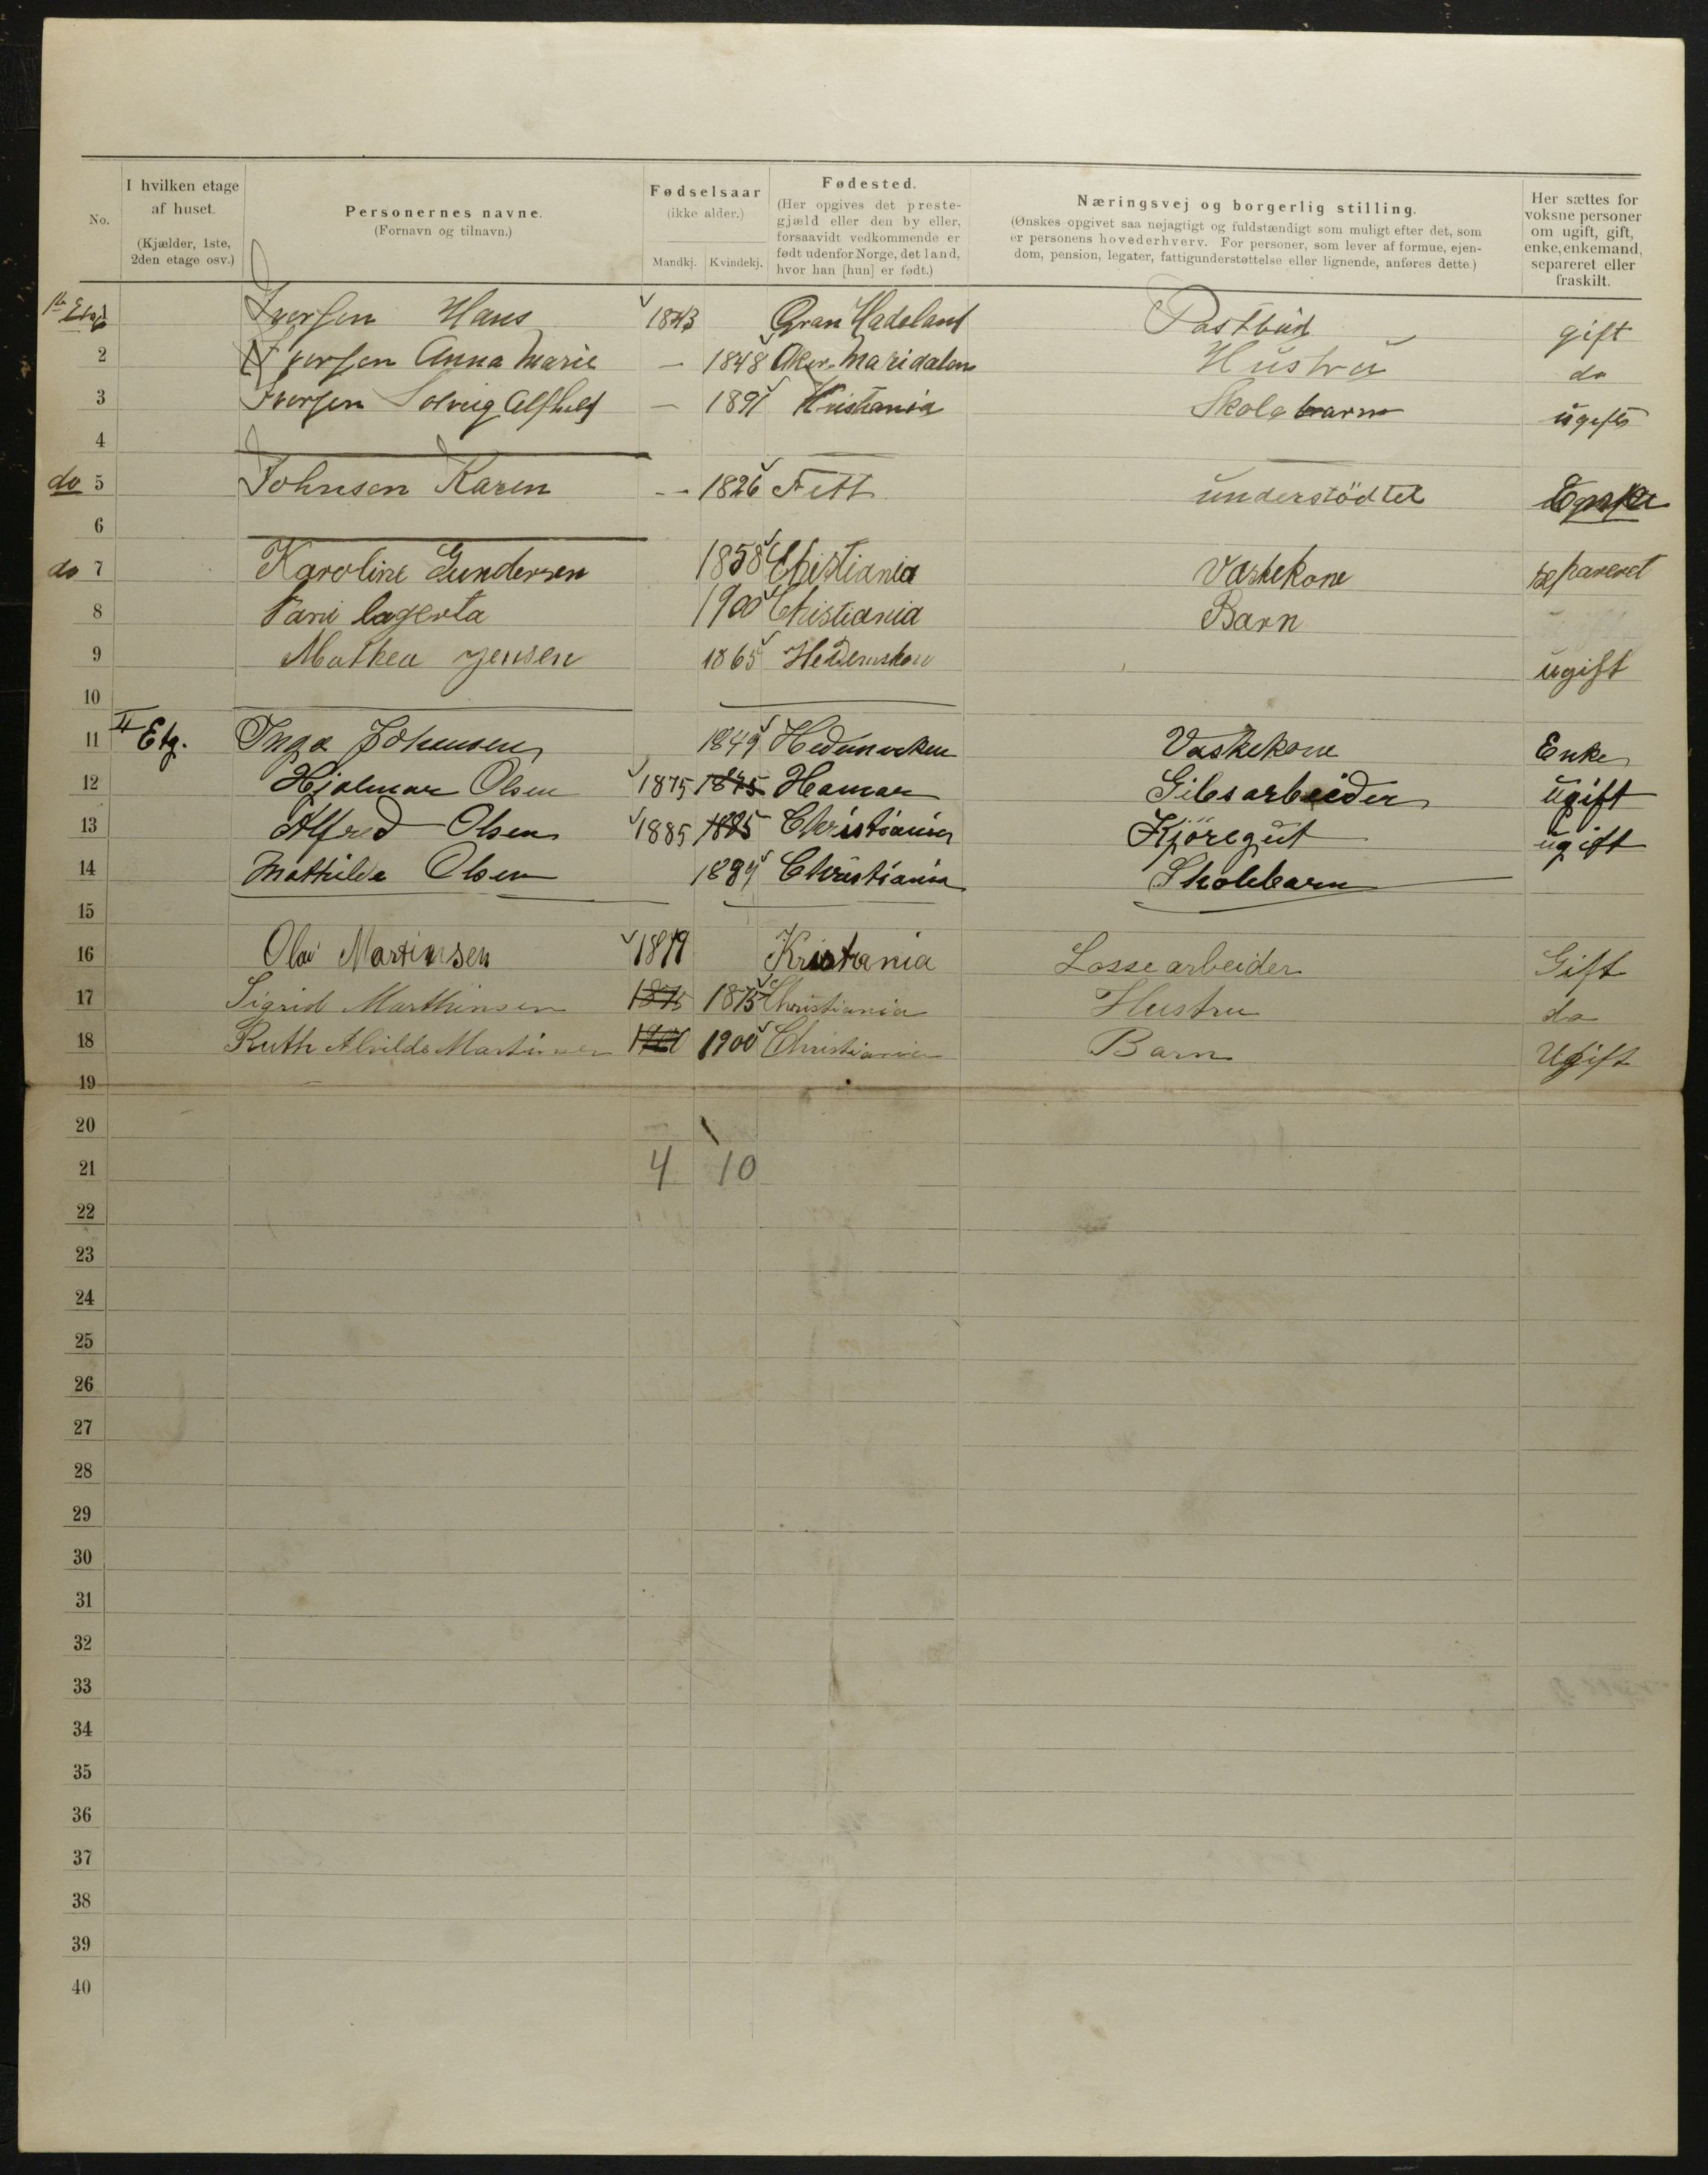 No.
I hvilken etage af huset. (Kjælder, 1ste, 2den etage osv.)
Personernes navne. (Fornavn og tilnavn.)
Fødselsaar (ikke alder.) Mandkj. Kvindekj.
Fødested. (Her opgives det prestegjæld eller den by eller, forsaavidt vedkommende er født udenfor Norge, det land, hvor han [hun] er født.)
Næringsvej og borgerlig stilling. (Ønskes opgivet saa nøjagtigt og fuldstændigt som muligt efter det, som er personens hovederhverv. For personer, som lever af formue, ejendom, pension, legater, fattigunderstøttelse eller lignende, anføres dette.)
Her sættes for voksne personer om ugift, gift, enke, enkemand, separeret eller fraskilt.
Iversen Hans 1843 Gran Hadeland Postbud gift
2 Iversen Anna Marie — 1848 Aker Maridalen Hustru do
3 Iversen Solveig Alfhild — 1891 Kristiania Skolebarn ugift
4
do 5 Johnsen Karen -- 1826 Fett understödtet Enke
6
do 7 Karoline Gundersen 1858 Christiania Vaskekone separeret
8 lagerta 1900 Christiania Barn
9 Mathea Jensen 1865 ugift
10
11 II Etg. Inga Johnsen 1849 Hedemarken Vaskekone Enke
12 Hjalmar Olsen 1875 1875 Hamar Gibsarbeider ugift
13 Alfred Olsen 1885 1885 Christiania Kjöregut ugift
14 Mathilde Olsen 1889 Christiania Skolebarn
15
16 Olav Martinsen 1879 Kristiania Lossearbeider Gift
17 Sigrid Marthinsen 1875 1875 Christiania Hustru do
18 Ruth Alvilde Martinsen 1900 1900 Christiania Barn Ugift
19
20
21 4 10
22
23
24
25
26
27
28
29
30
31
32
33
34
35
36
37
38
39
40